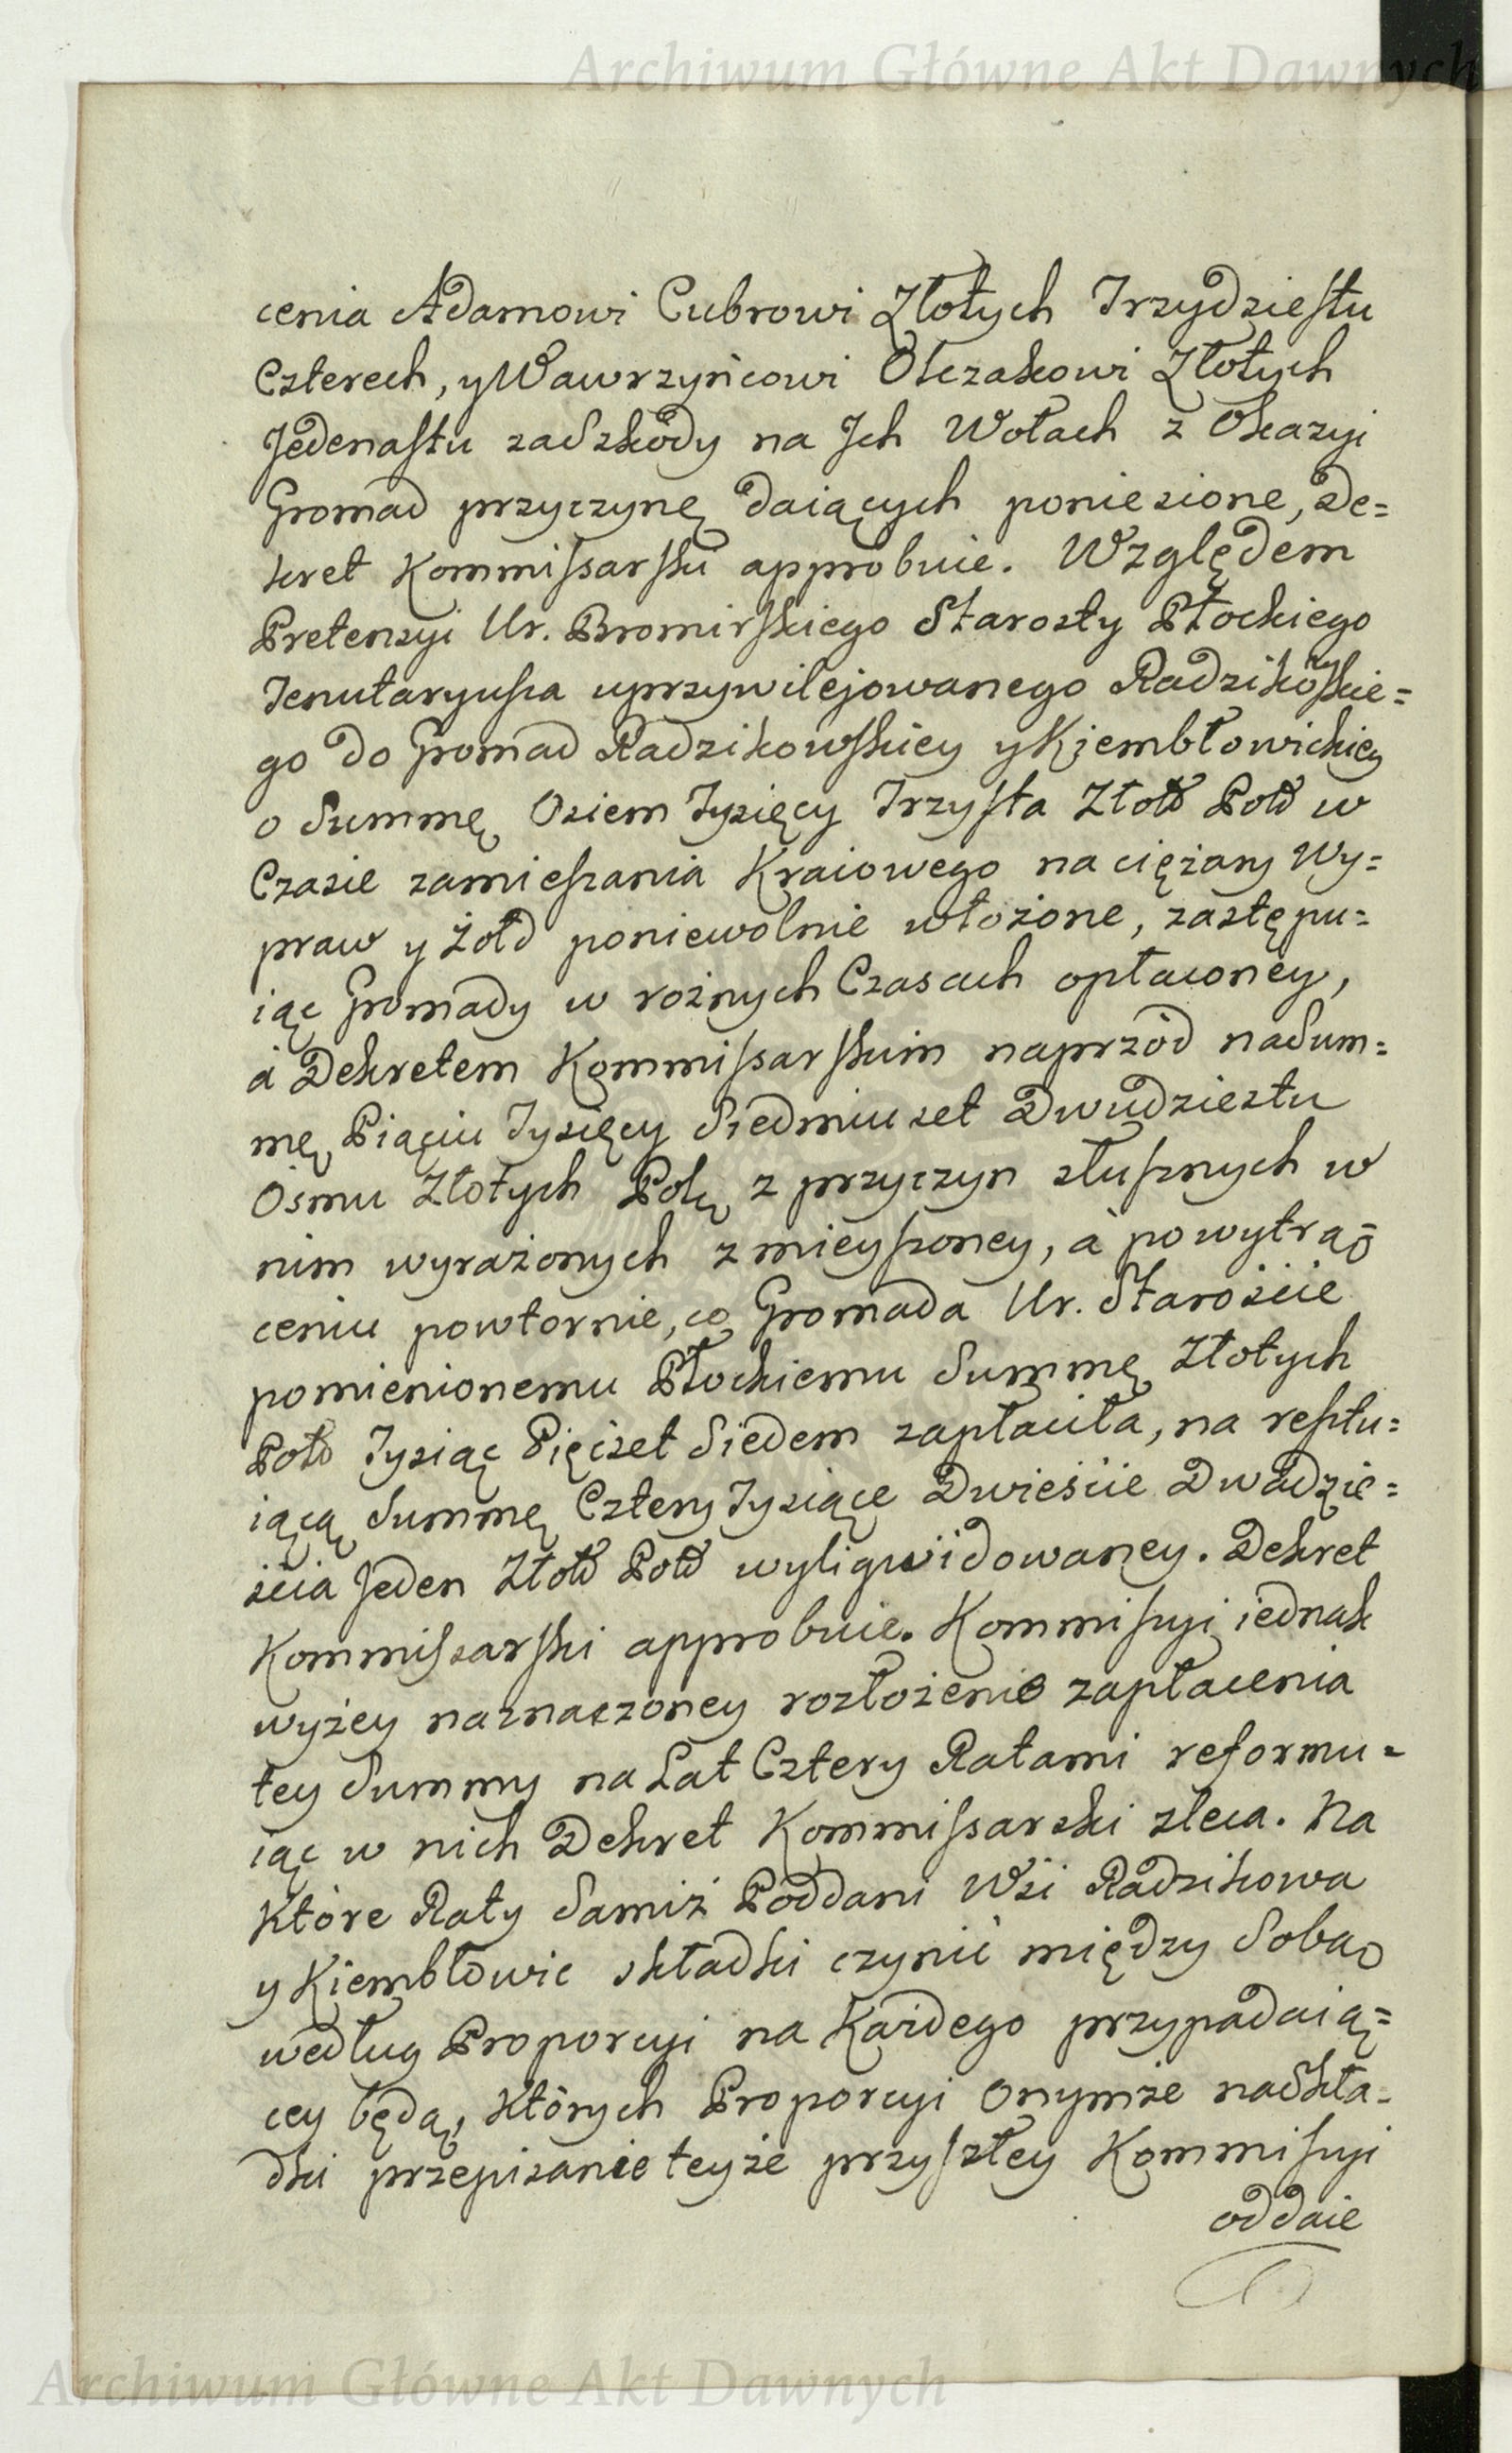 Archiwum Główne Akt Dawnych
cenia Adamowi Cubrowi Złotych Trzydziestu
Czterech, y Wawrzyńcowi Olczakowi Złotych
Jedenastu za Szkody na Jch Wołach z Okazyi
Gromad przyczynę daiących poniesione, De=
kret Kommissarski approbuie. Względem
Pretensyi Ur. Bromirskiego Starosty Płockiego
Tenutaryusza uprzywilejowanego Radzikowskie=
go do Gromad Radzikowskiey y Kiembłowickiey
o Summę Osiem Tysięcy Trzysta Złott Poll w
Czasie zamieszania Kraiowego na ciężary Wy=
praw y żołd poniewolnie włożone, zastępu=
iąc Gromady w rożnych Czasach opłaconey,
á Dekretem Kommissarskim naprzod na Sum=
mę Piąciu Tysięcy Siedmiuset Dwudziestu
Ośmu Złotych Pol: z przyczyn słusznych w
nim wyrażonych zmieyszoney, á po wytrą=
ceniu powtornie, co Gromada Ur. Staroście
pomienionemu Płockiemu Summę Złotych
Poll Tysiąc Pięćset Siedem zapłaciła, na resztu=
iącą Summę Cztery Tysiące Dwieście Dwadzie=
ścia Jeden Złott Poll wyliqwidowaney. Dekret
Kommissarski approbuie. Kommissyi iednak
wyżey naznaczoney rozłożenie zapłacenia
tey Summy na Lat Cztery Ratami reformu=
iąc w nich Dekret Kommissarski zleca. Na
Które Raty Samiż Poddani Wsi Radzikowa
y Kiembłowic składki czynić między Sobą
według Proporcyi na Każdego przypadaią=
cey będą, Których Proporcyi Onymże na Skła=
dki przepisanie teyże przyszłey Kommissyi
oddaie
Archiwum Główne Akt Dawnych